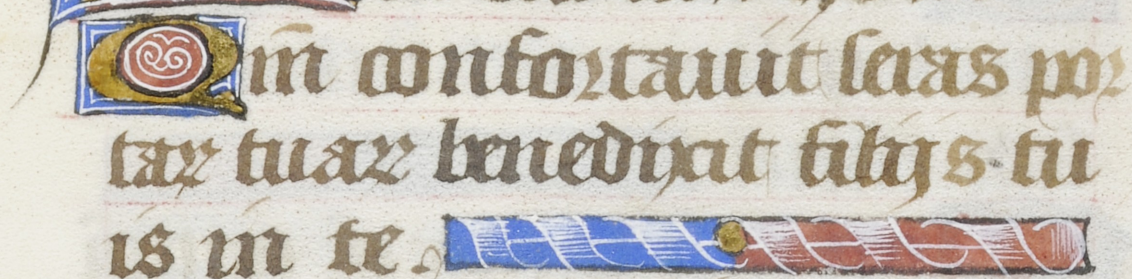 Qm̄ confortauit seras por
tarꝝ tuarꝝ benedixit filijs tu
is in te.